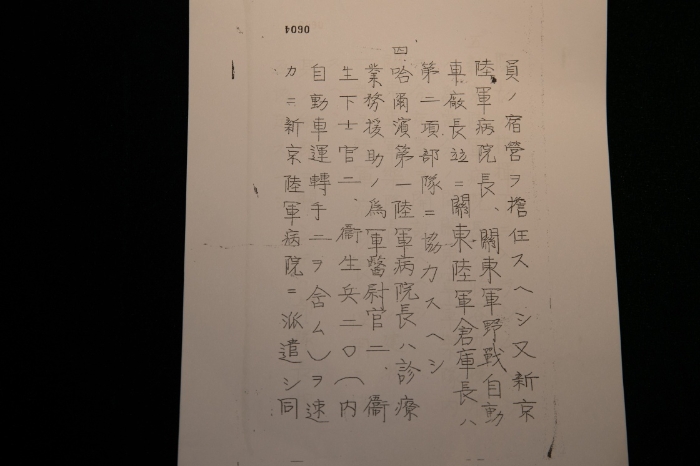 0604
員ノ宿營ヲ擔任スヘシ又新京
陸軍病院長、關東軍野戰自動
車廠長竝ニ關東陸軍倉庫長ハ
第二項部隊ニ協力スヘシ
四、哈爾濱第一陸軍病院長ハ診療
業務援助ノ爲軍醫尉官二、衞
生下士官二、衞生兵二〇(内
自動車運轉手二ヲ含ム)ヲ速
カニ新京陸軍病院ニ派遣シ同